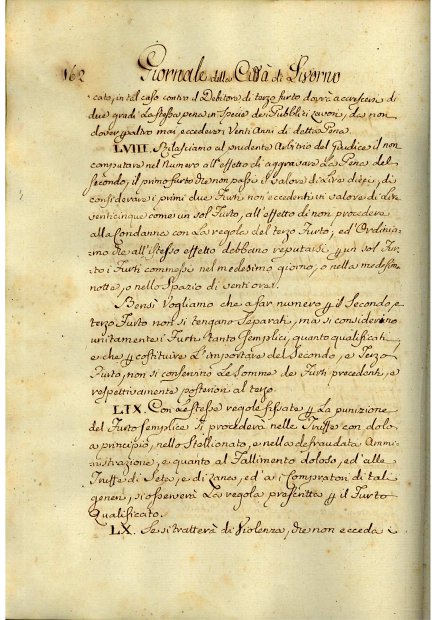 162 Giornale della Città di Livorno
cato, in tal caso contro il Debitore di terzo furto dovrà accrescersi di
due gradi la stessa pena in specie de Pubblici Lavori, da non
dover p altro mai eccedere i Venti Anni di detta Pena.
LVIII. Rilasciamo al prudente Arbitrio del Giudice il non
computare nel numero all'effetto di aggravare la Pena del
secondo, il primo furto che non passi il valore di Lire dieci, di
considerare i primi due Furti non eccedenti in valore di Lire
venticinque come un sol Furto, all'effetto di non procedere
alla Condanna con la regola del terzo Furto, ed Ordinia-
mo che all'istesso effetto debbano reputarsi p un sol Fur-
to i Furti commessi nel medesimo giorno, o nella medesima
notte, o nello spazio di venti ore.
Bensì Vogliamo che a far numero p il Secondo, e
terzo Furto non si tengano separati, ma si considerino
unitamente i Furti tanto semplici, quanto qualificati
e che p costituire l'importare del Secondo, e Terzo
Furto, non si conservino le somme de Furti precedenti, e
respettivamente posteriori al terzo.
LIX. Con le stesse regole fissate p la punizione
del Furto semplice si procederà nelle Truffe con dolo
a principio, nello Stellionato, e nella defraudata Ammi-
nistrazione, e quanto al Fallimento doloso, ed alle
Truffe di Seta, e di Lana, ed a i Compratori di tali
generi, si osserverà la regola prescritta p il Furto
Qualificato.
LX. Se si tratterà di Violenza, che non ecceda i